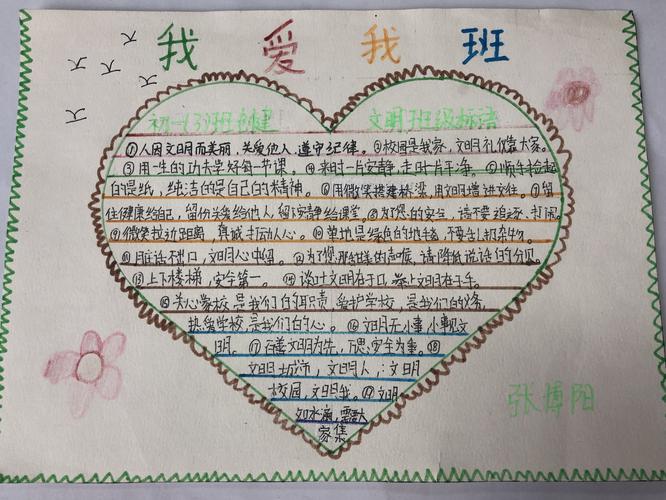 我爱我班
初一(3)班创建 文明班级标语
①人因文明而美丽,关爱他人,遵守纪律。②校园是我家,文明礼仪靠大家。
③用一生的功夫学好每一节课。④来时一片安静,走时一片干净。⑤顺手捡起
的是纸,纯洁的是自己的精神。⑥用微笑搭建桥梁,用文明增进交往。⑦留
住健康给自己,留份关爱给他人,留下安静给课堂。⑧为了您的安全,请不要追逐、打闹。
⑨微笑拉近距离,真诚打动人心。⑩草地是绿色的地毯,不要乱扔杂物。
⑪脏话不出口,文明心中留。⑫为了您那甜美的声喉,请降低说话的分贝。
⑬上下楼梯,安全第一。⑭谈吐文明在于口,举止文明在于手。
⑮关心学校,是我们的职责,爱护学校,是我们的义务,
热爱学校,是我们的心。⑯文明无小事,小事见文
明。⑰百善文明为先,万思安全为重。⑱
文明城市,文明人,文明
校园,文明我。⑲文明
如水滴,需大
家集
张博阳